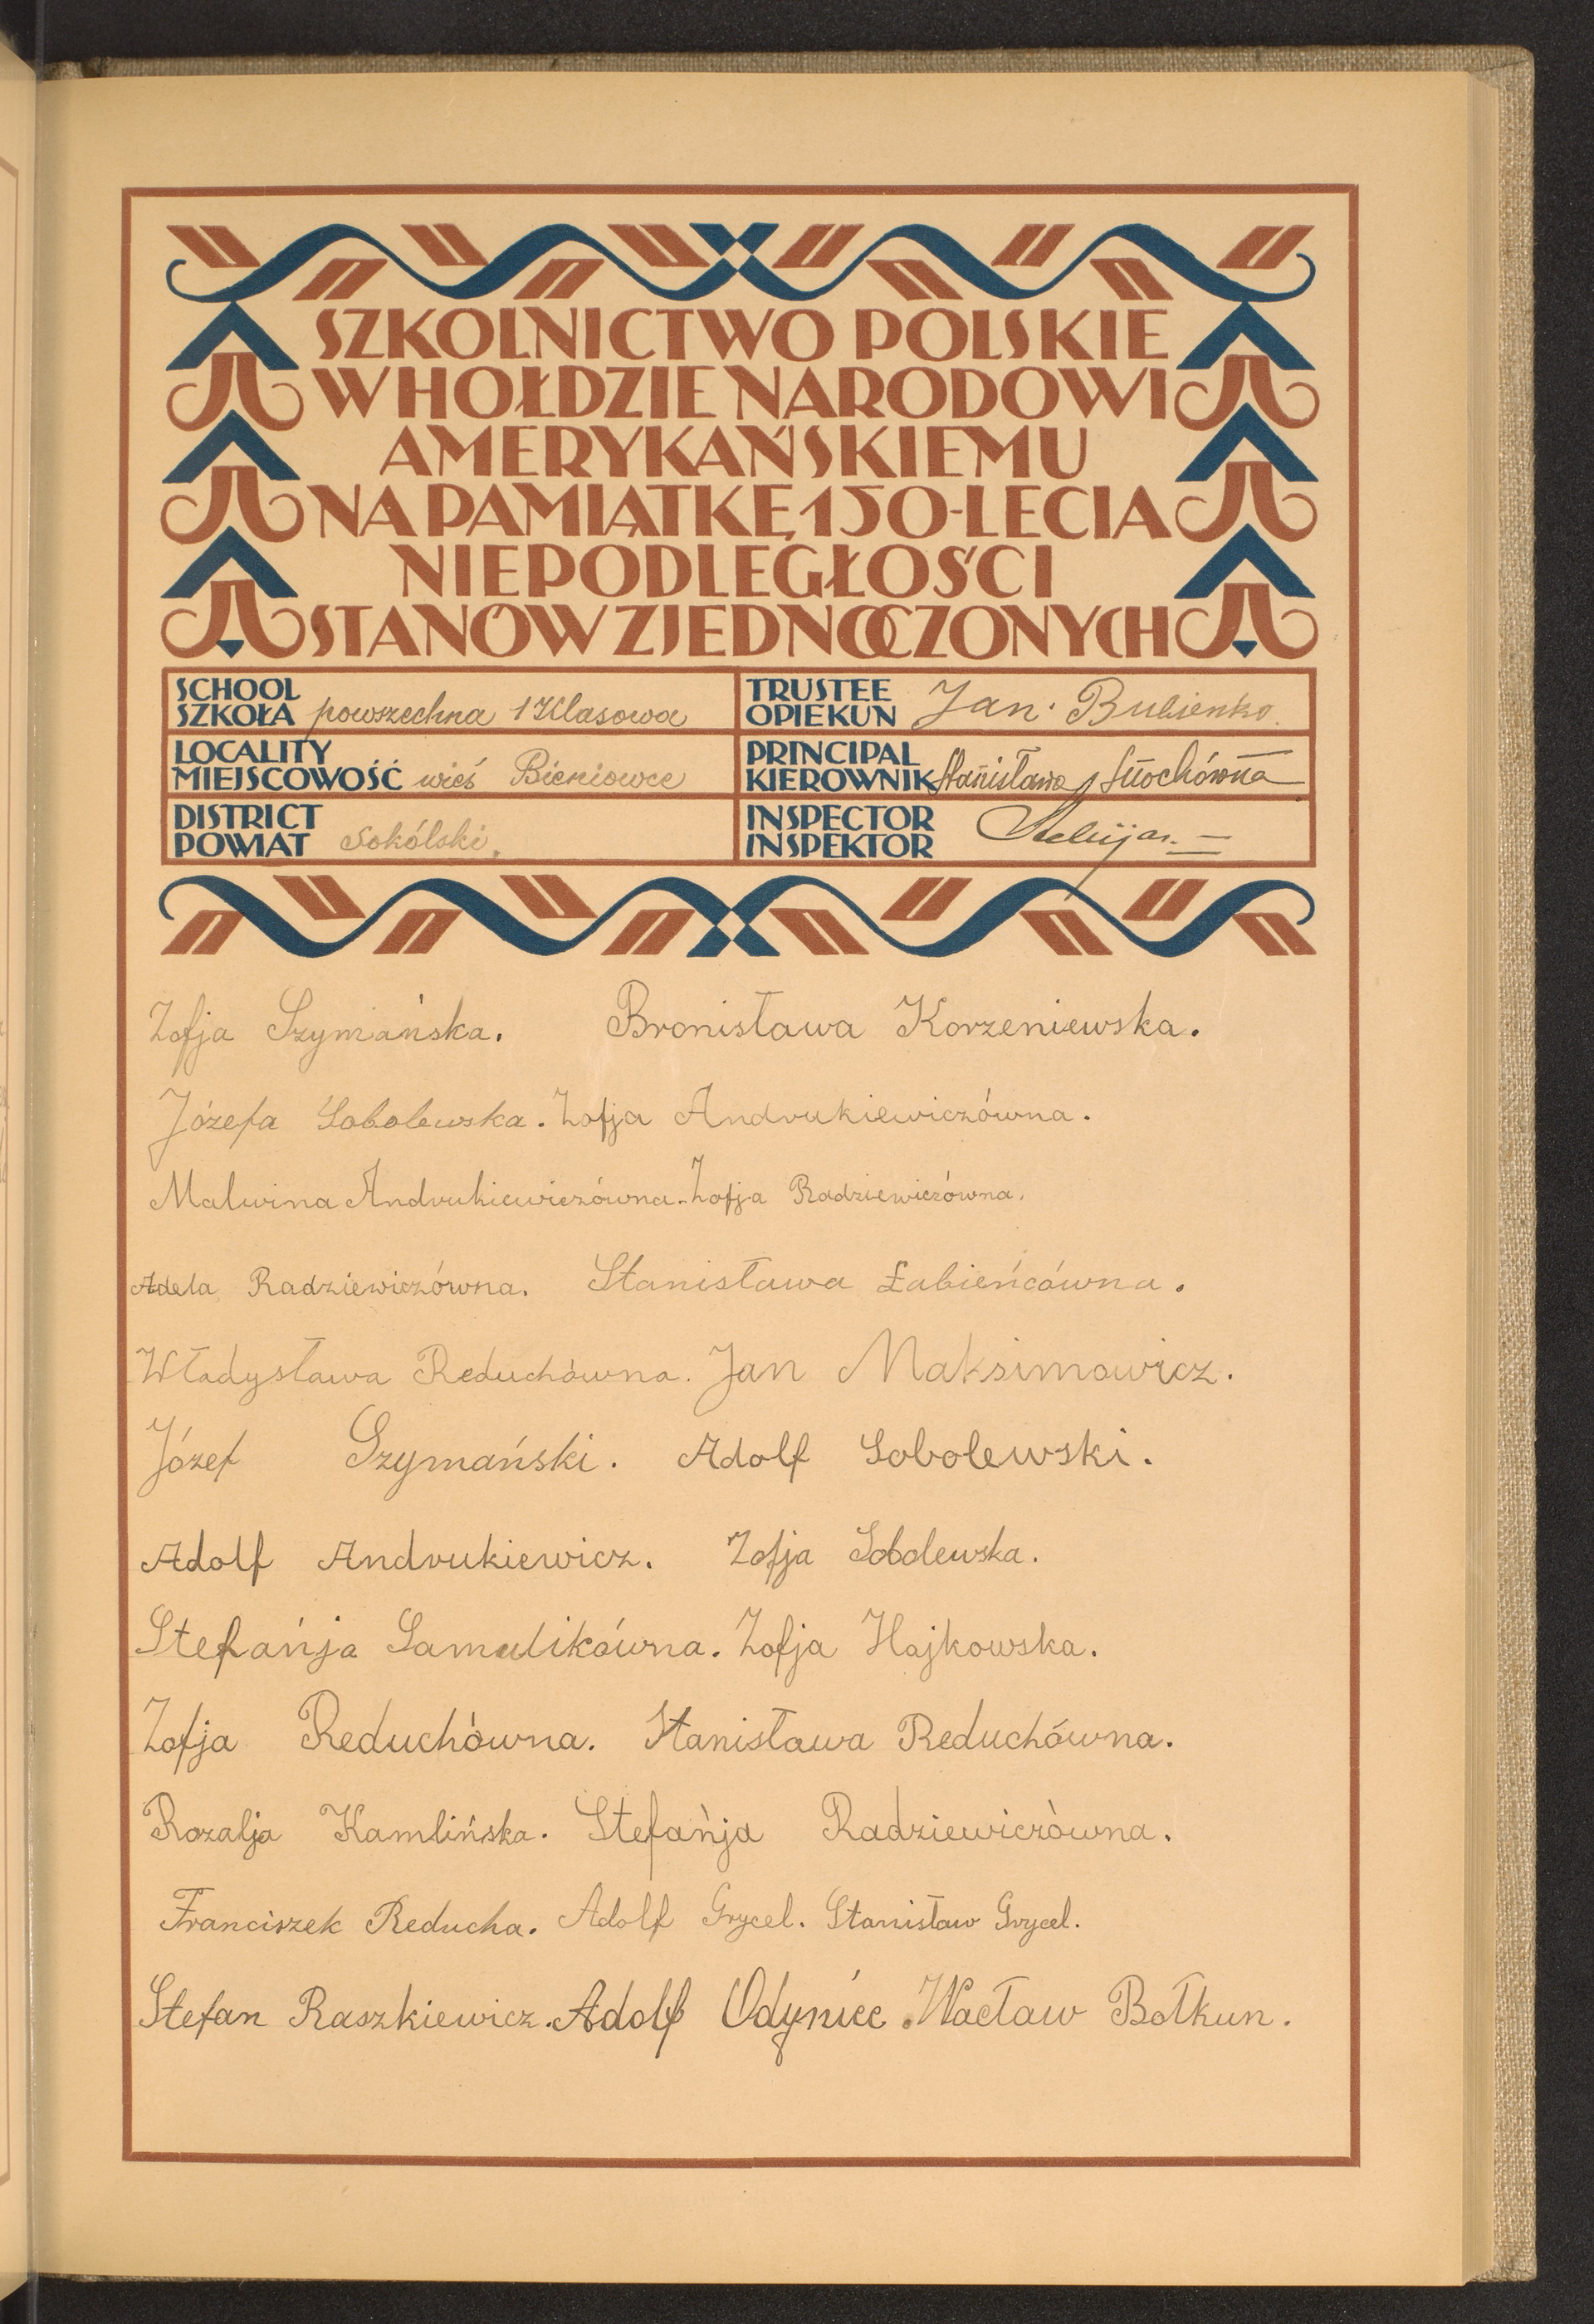 SZKOLNICTWO POLSKIE
W HOŁDZIE NARODOWI
AMERYKAŃSKIEMU
NA PAMIĄTKĘ 150-LECIA
NIEPODLEGŁOŚCI
STANÓW ZJEDNOCZONYCH
SCHOOL
SZKOŁA powszechna 1 Klasowa
TRUSTEE
OPIEKUN Jan Bubienko.
LOCALITY
MIEJSCOWOŚĆ wieś Bieniowce
PRINCIPAL
KIEROWNIK Stanisława
DISTRICT
POWIAT Sokólski.
INSPECTOR
INSPEKTOR
Zofja Szymańska. Bronisława Korzeniewska.
Józefa Sobolewska. Zofja Andrukiewiczówna.
Malwina Andrukiewiczówna. Zofja Radziewiczówna.
Adela Radziewiczówna. Stanisława Łabieńcówna.
Władysława Reduchówna. Jan Maksimowicz.
Józef Szymański. Adolf Sobolewski.
Adolf Andrukiewicz. Zofja Sobolewska.
Stefańja Samulikówna. Zofja Hajkowska.
Zofja Reduchówna. Stanisława Reduchówna.
Rozalja Kamlińska. Stefańja Radziewiczówna.
Franciszek Reducha. Adolf Grycel. Stanisław Grycel.
Stefan Raszkiewicz. Adolf Odyniec. Wacław Bołkun.